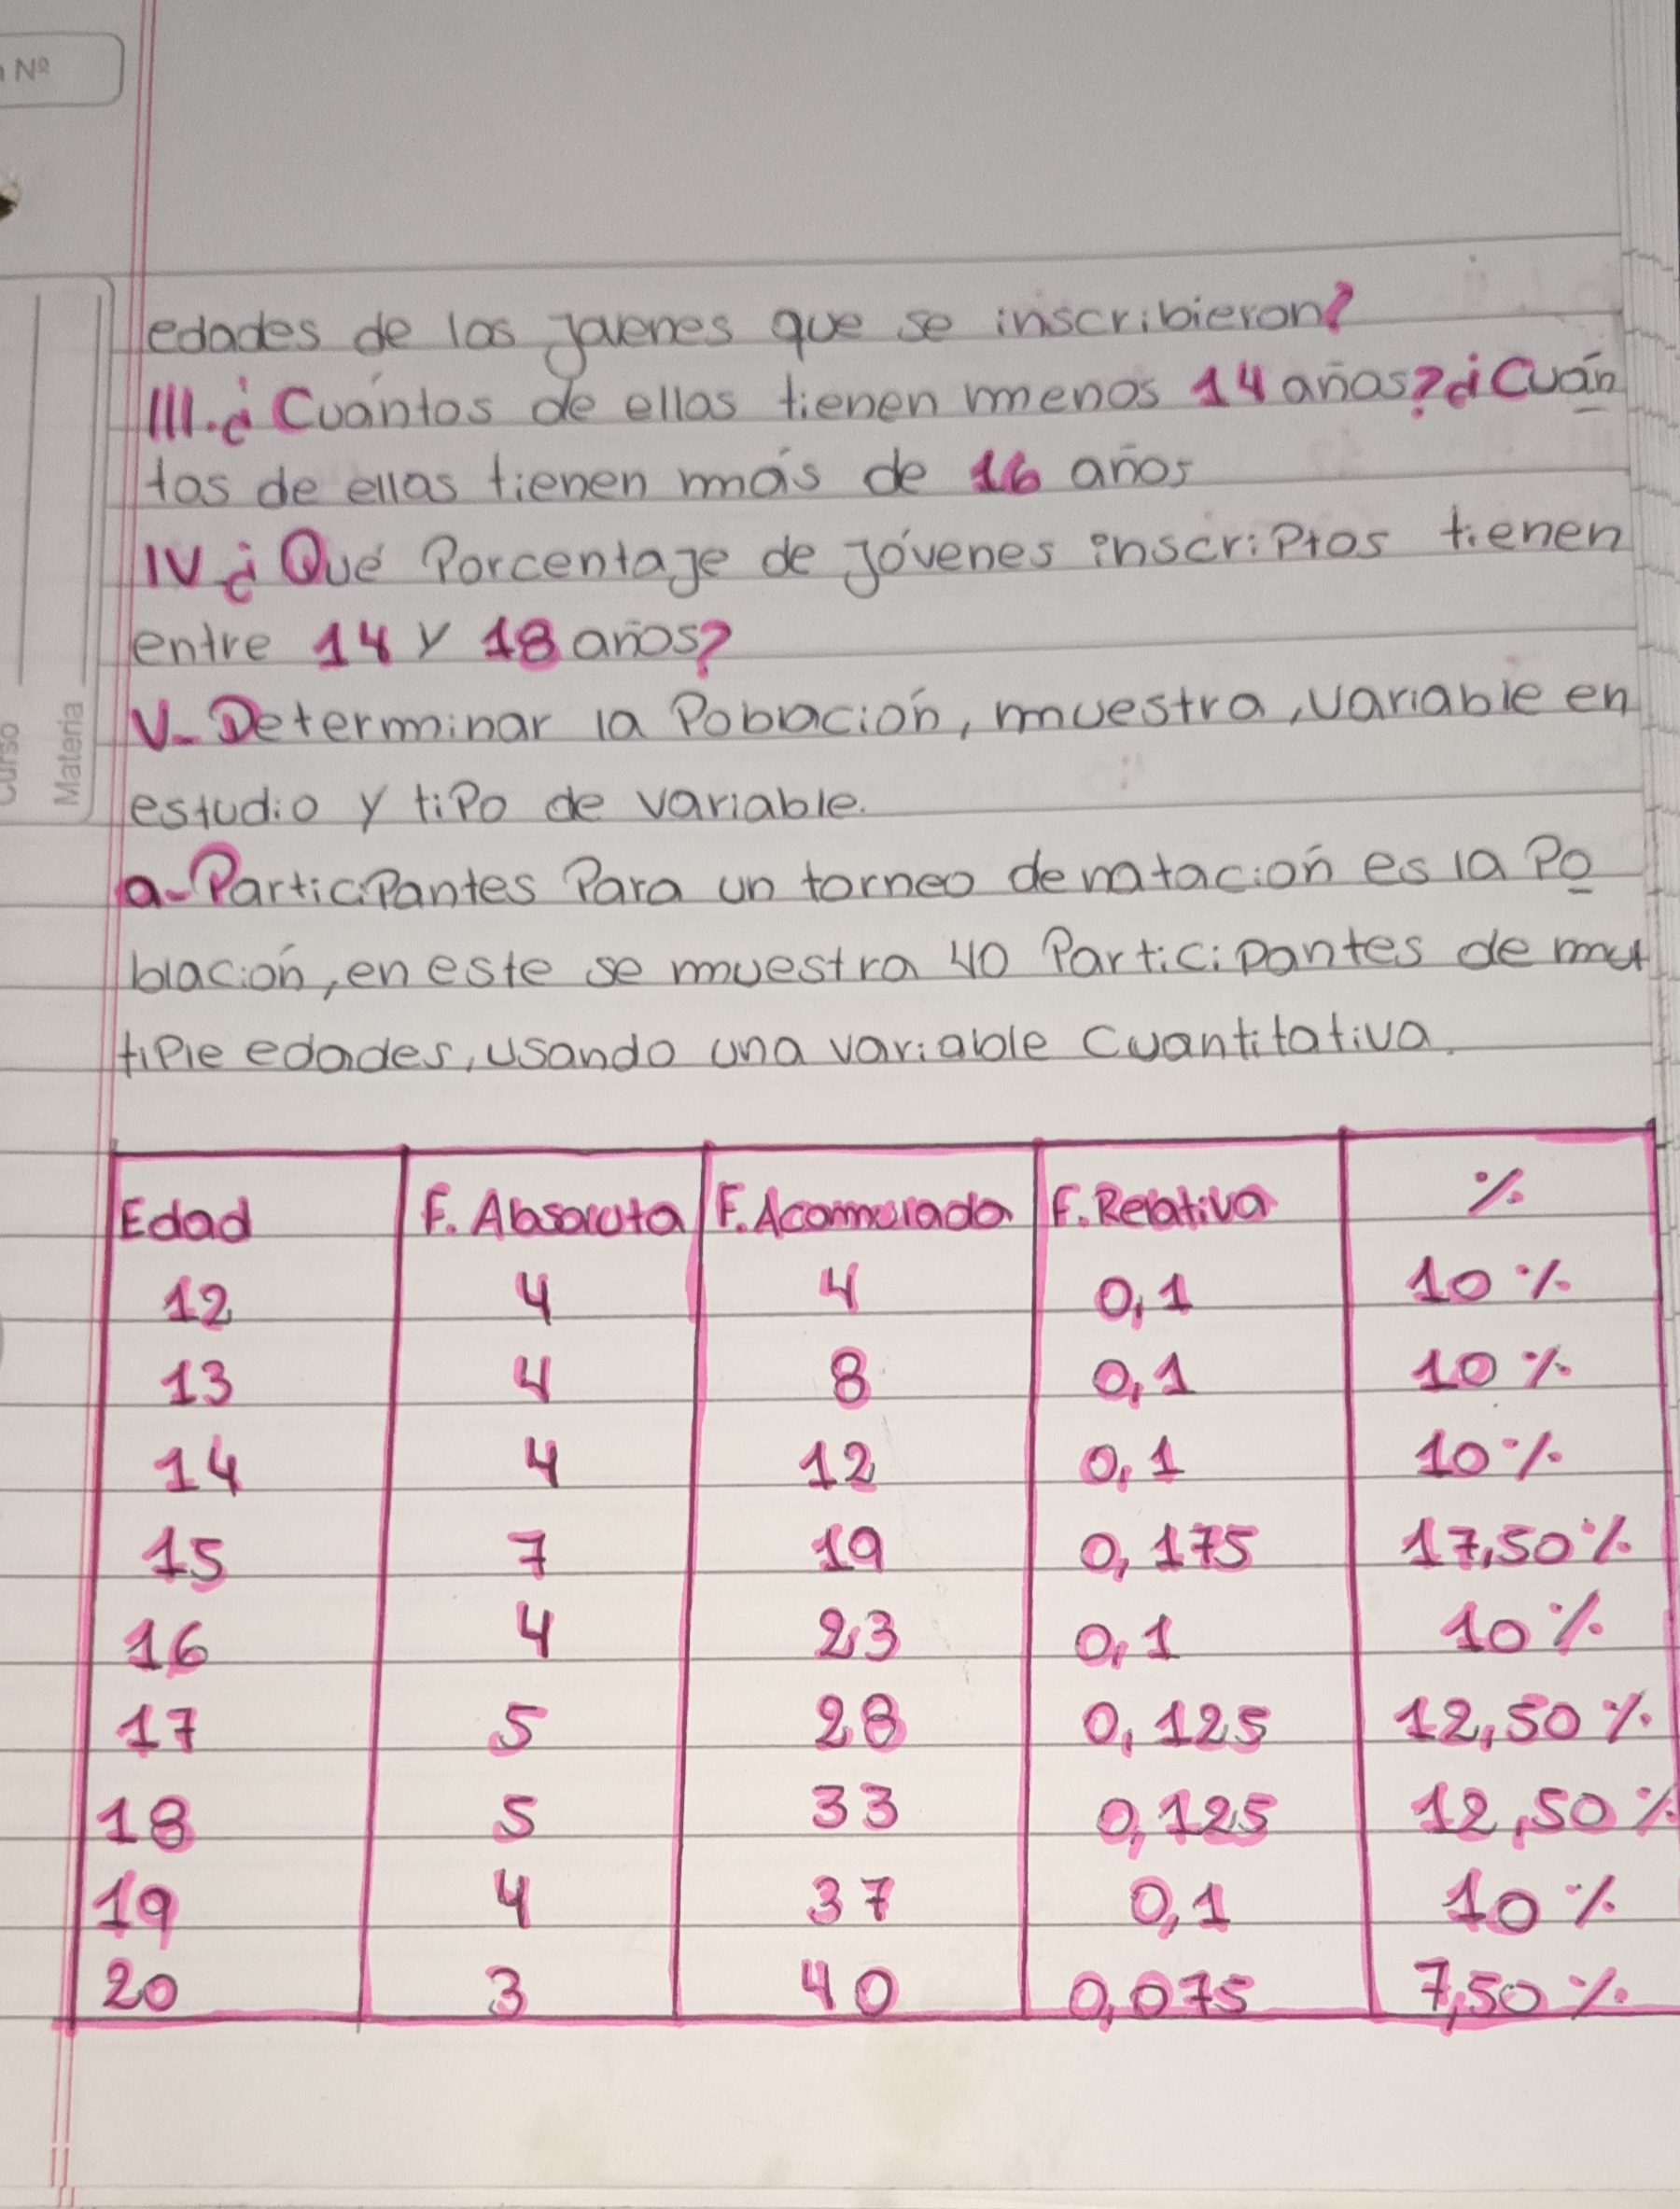 Nº
Curso
Materia
edades de los jovenes que se inscribieron?
III.¿Cuántos de ellos tienen menos 14 años?¿Cuán
tos de ellas tienen más de 16 años
IV¿Qué Porcentaje de jóvenes inscriptos tienen
entre 14 y 18 años?
V-Determinar la Pobación, muestra, variable en
estudio y tipo de variable.
a-Participantes Para un torneo de natación es la Po
blación, en este se muestra 40 Participantes de mul
tiple edades, usando una variable Cuantitativa.
Edad F. Absoluta F. Acomulada F. Relativa %
12 4 4 0,1 10%
13 4 8 0,1 10%
14 4 12 0,1 10%
15 7 19 0,175 17,50%
16 4 23 0,1 10%
17 5 28 0,125 12,50%
18 5 33 0,125 12,50%
19 4 37 0,1 10%
20 3 40 0,075 7,50%